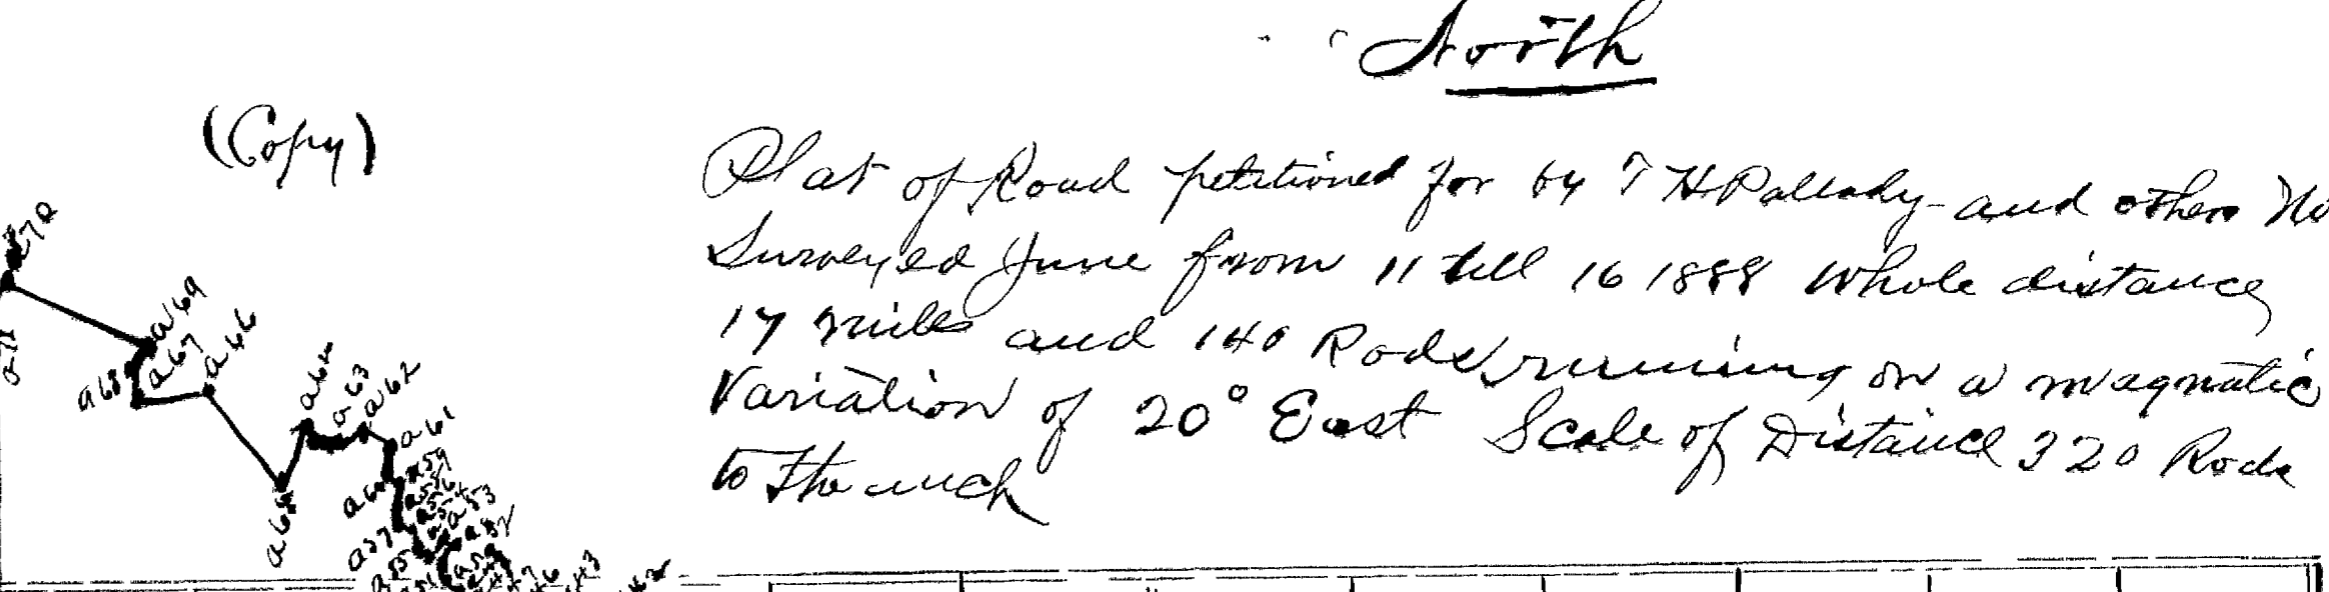 North
(Copy)
Plat of Road petitioned for by T H Pallady and others No
Surveyed June from 11 till 16 1888 Whole distance
17 miles and 140 Rods running on a magnatic
Variation of 20° East Scale of Distance 320 Rods
to the inch
a70
a69
a67
a66
a68
a64
a63
a62
a61
a65
a60
a59
a53
a52
a57
a55